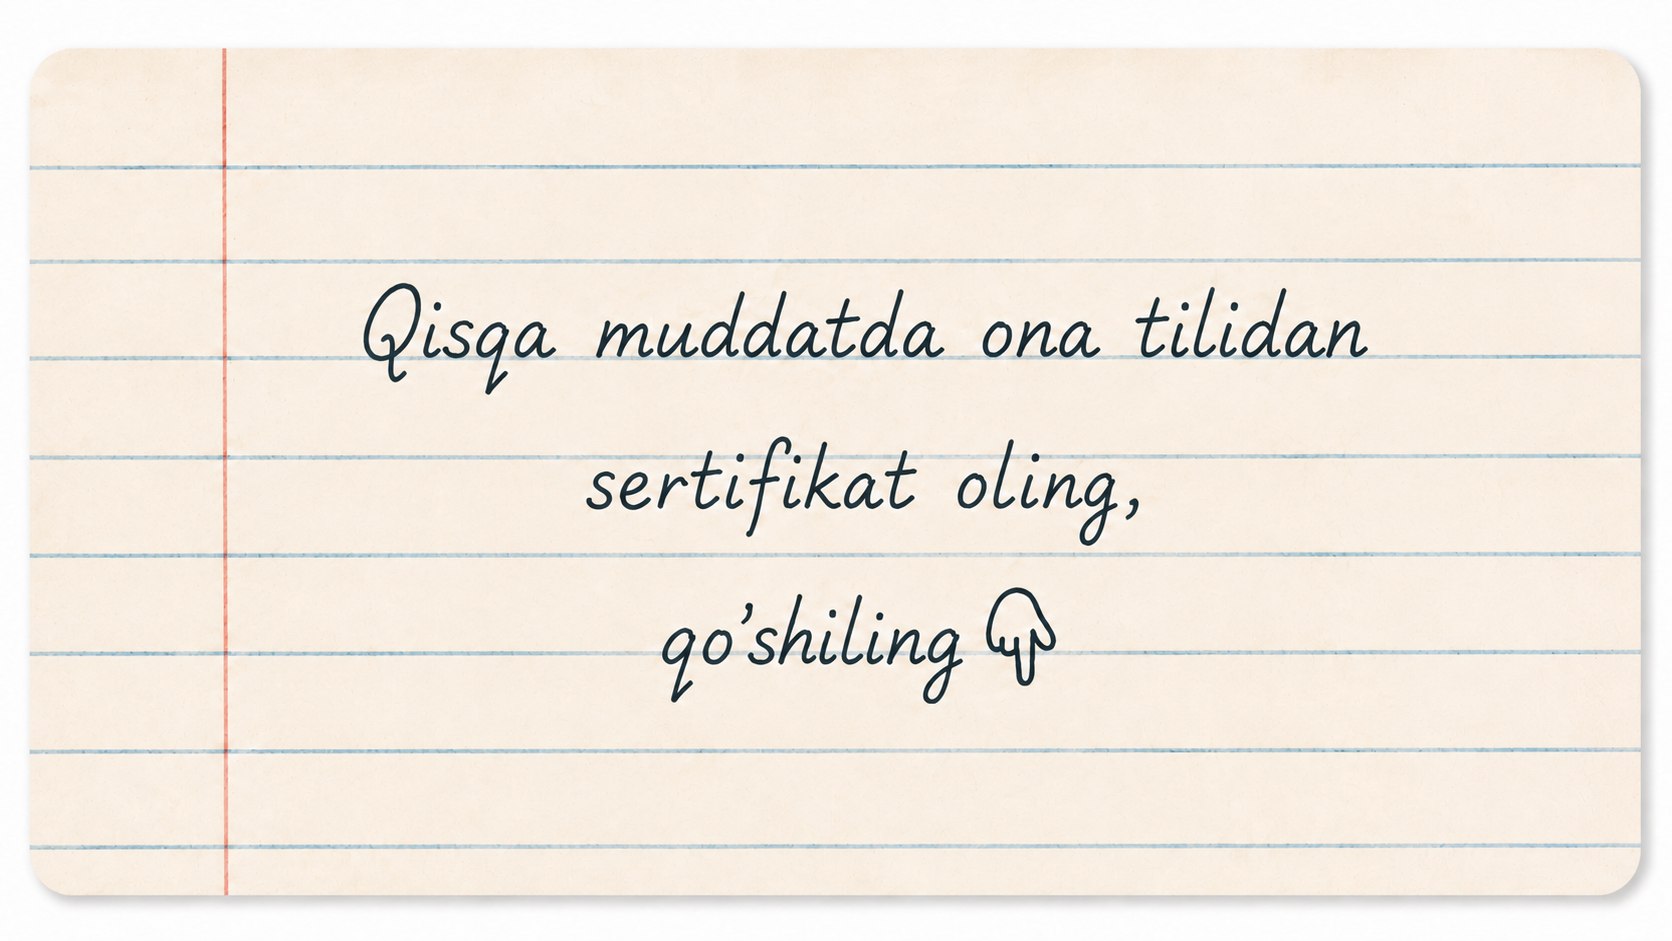 Qisqa muddatda ona tilidan
sertifikat oling,
qo’shiling 👇